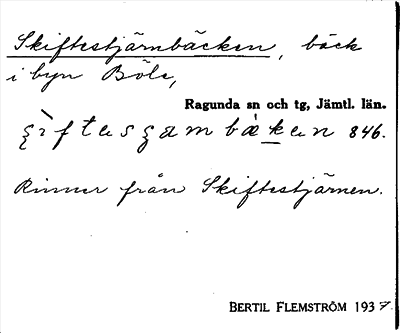 Skiftestjärnbäcken, bäck
i byn Böle,
Ragunda sn och tg, Jämtl. län.
846.
Rinner från Skiftestjärnen.
BERTIL FLEMSTRÖM 1937.